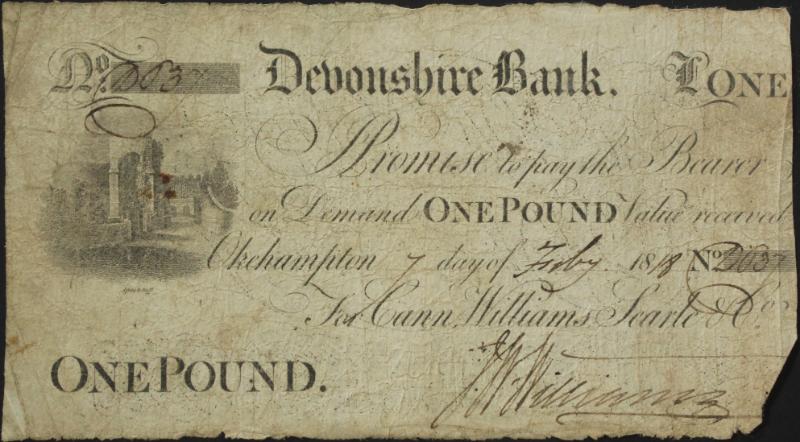 No. D637 Devonshire Bank. I ONE
Promise to pay the Bearer
on Demand ONE POUND Value received
Okehampton 7 day of Feby. 1818 No. D637
For Cann, Williams, Searle & Co.
ONE POUND. J W Williams